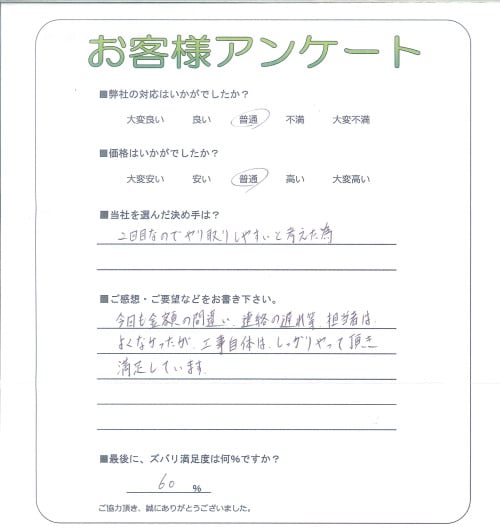 お客様アンケート
■弊社の対応はいかがでしたか？
大変良い 良い 普通 不満 大変不満
■価格はいかがでしたか？
大変安い 安い 普通 高い 大変高い
■当社を選んだ決め手は？
2回目なのでやり取りしやすいと考えた為
■ご感想・ご要望などをお書き下さい。
今回も金額の間違い、連絡の遅れ等、担当者は
よくなかったが、工事自体は、しっかりやって頂き
満足しています。
■最後に、ズバリ満足度は何%ですか？
60 %
ご協力頂き、誠にありがとうございました。